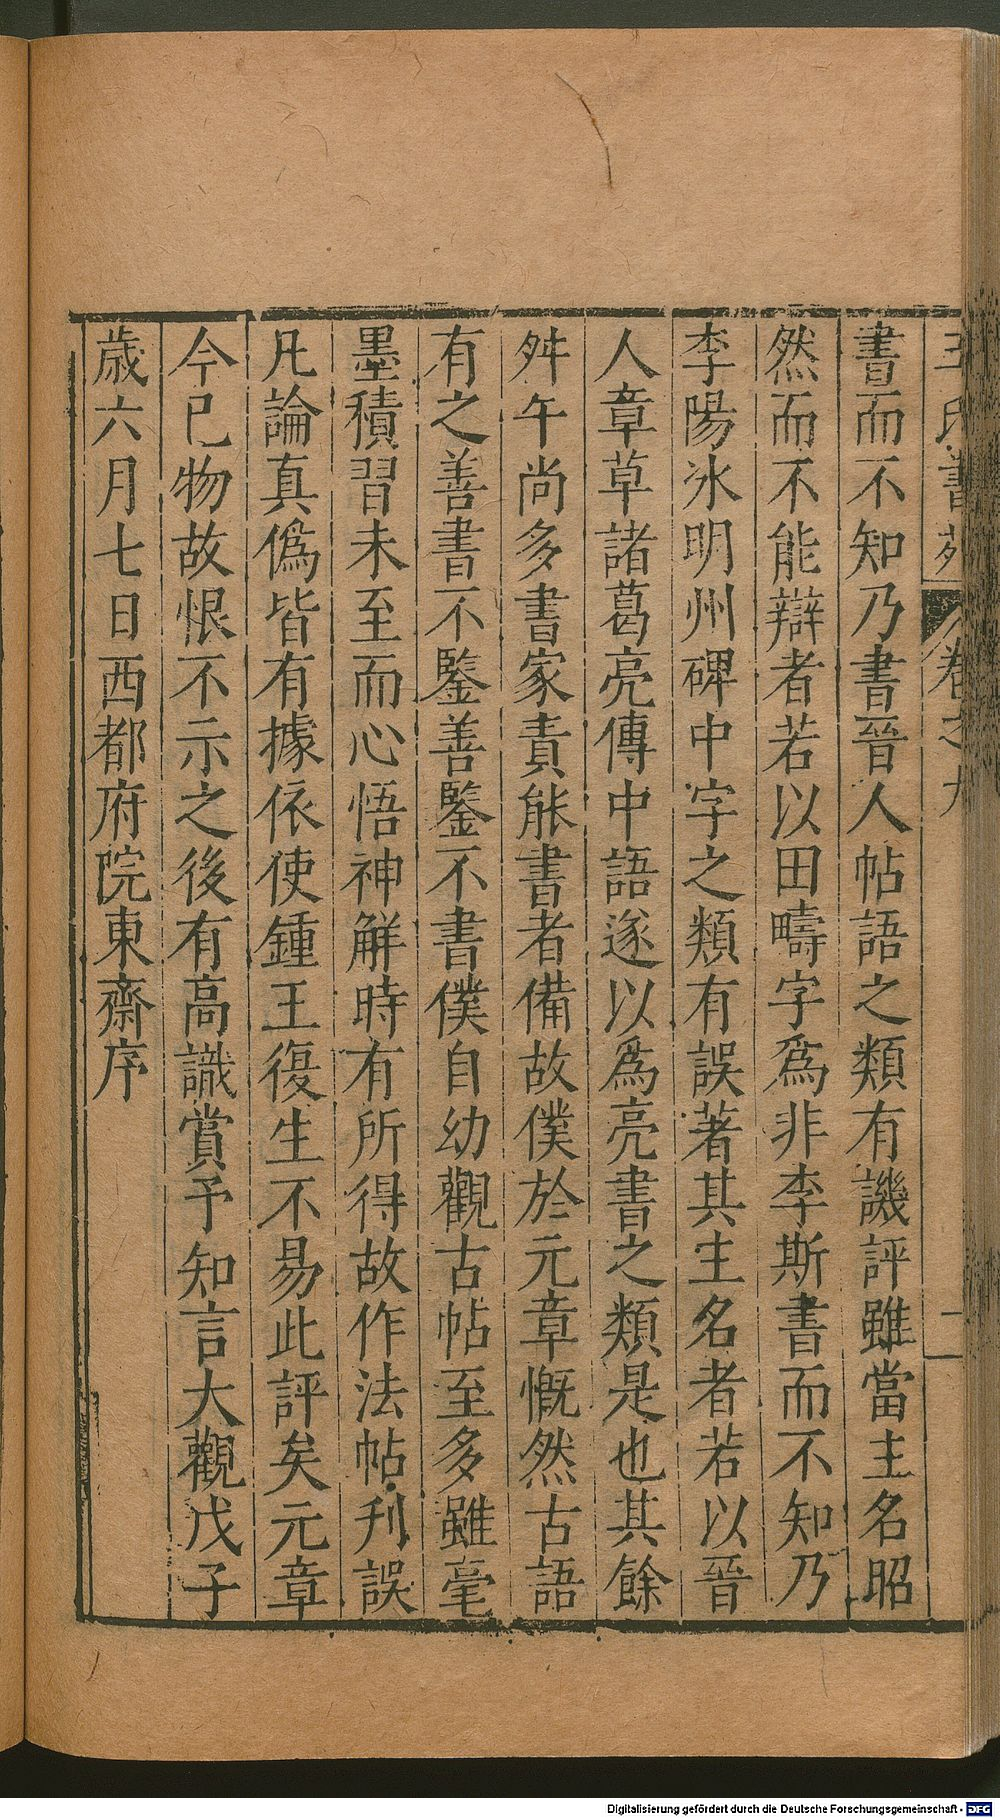 王氏書苑 卷之九 二
書而不知乃書晉人帖語之類有譏評雖當主名昭
然而不能辯者若以田疇字爲非李斯書而不知乃
李陽冰明州碑中字之類有誤著其主名者若以晉
人章草諸葛亮傳中語遂以爲亮書之類是也其餘
舛午尚多書家責能書者備故僕於元章慨然古語
有之善書不鑒善鑒不書僕自幼觀古帖至多雖毫
墨積習未至而心悟神解時有所得故作法帖刋誤
凡論真僞皆有據依使鍾王復生不易此評矣元章
今已物故恨不示之後有高識賞予知言大觀戊子
歲六月七日西都府院東齋序
Digitalisierung gefördert durch die Deutsche Forschungsgemeinschaft - DFG